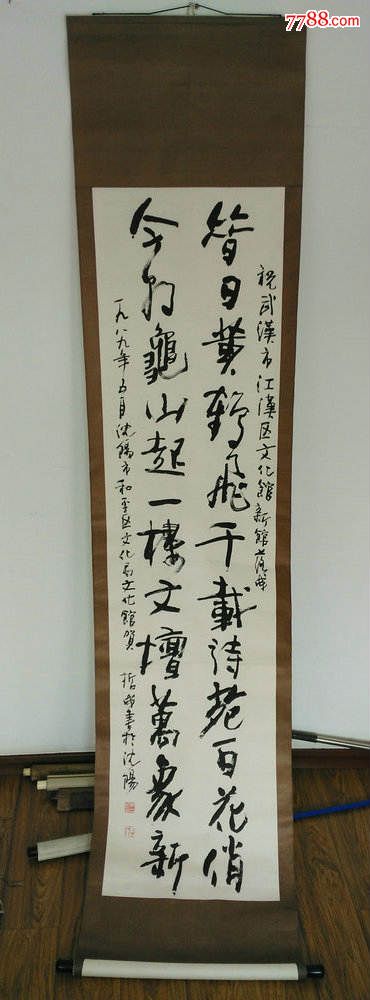 7788.com
祝武漢市江漢区文化館新館落成
昔日黄鶴飛千載诗苑百花俏
今朝龜山起一樓文壇萬象新
一九八九年五月沈陽市和平区文化局文化館賀
哲明書於沈陽